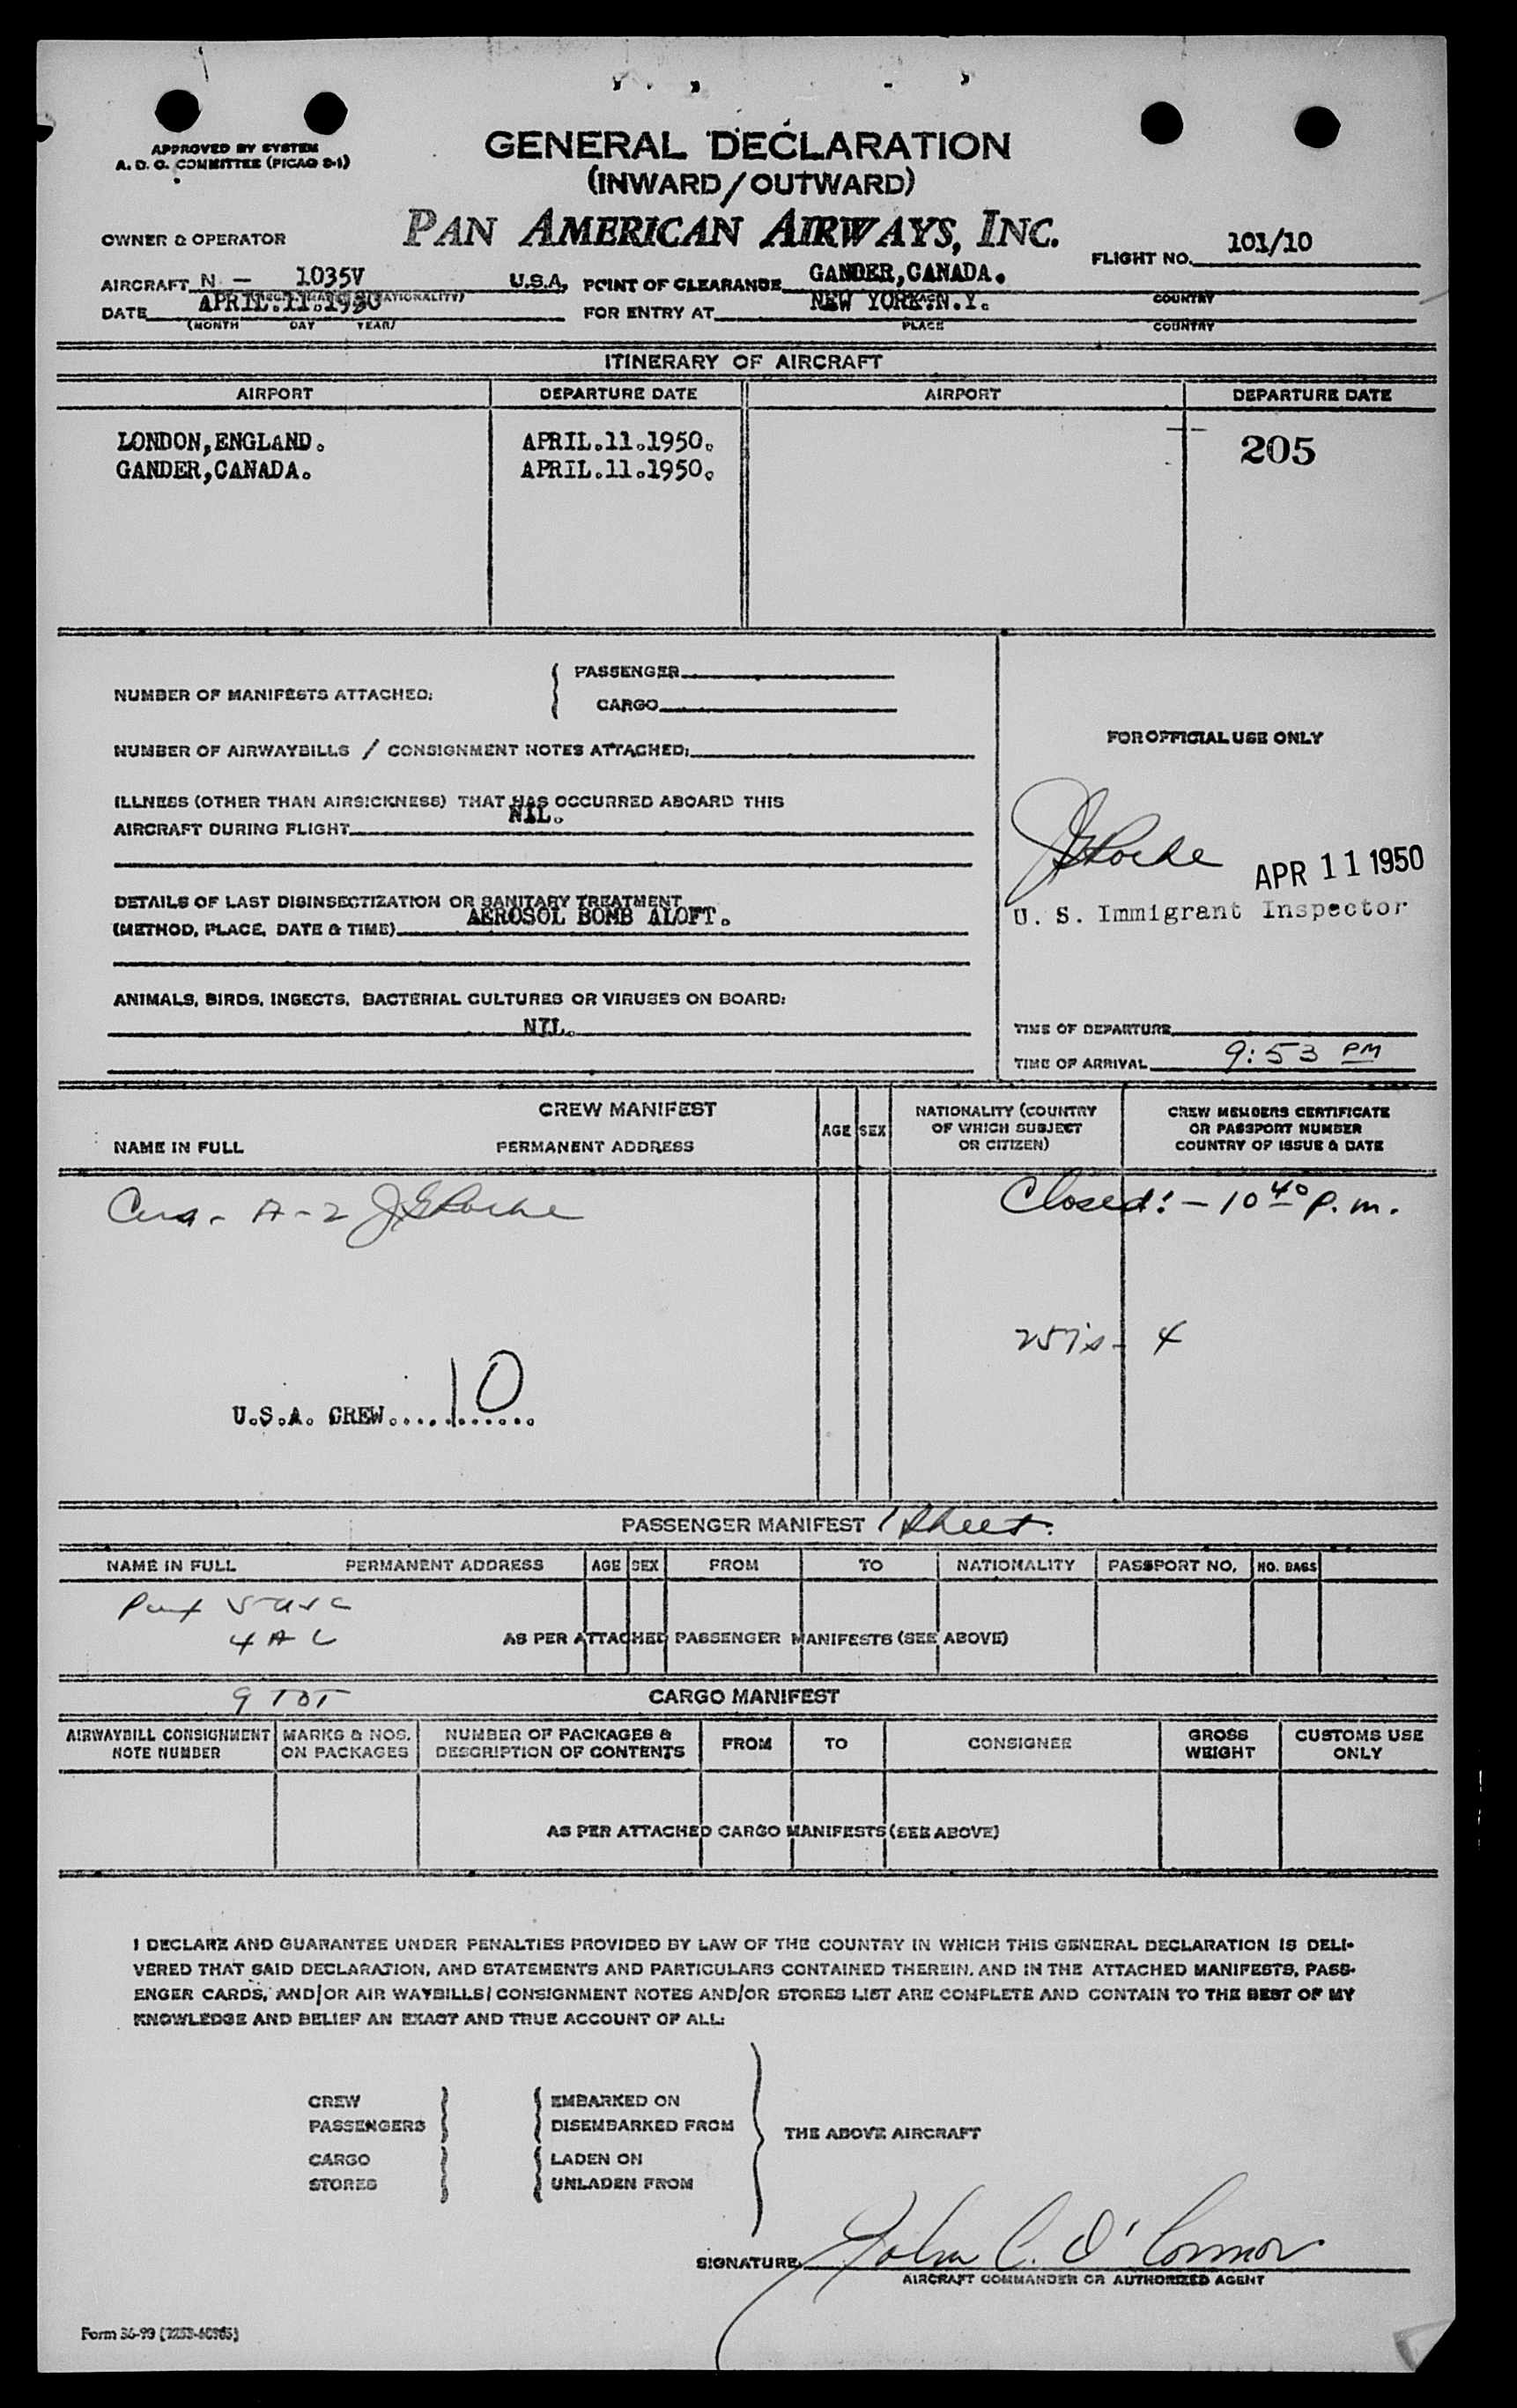 APPROVED BY SYSTEM
A. D. O. COMMITTEE (PICAO 8-1)
GENERAL DECLARATION
(INWARD/OUTWARD)
OWNER & OPERATOR PAN AMERICAN AIRWAYS, INC.
FLIGHT NO. 101/10
AIRCRAFT N - 1035V U.S.A. POINT OF CLEARANCE GANDER,CANADA.
COUNTRY
DATE APRIL.11.1950 FOR ENTRY AT NEW YORK.N.Y.
(MONTH DAY YEAR) PLACE COUNTRY
ITINERARY OF AIRCRAFT
AIRPORT DEPARTURE DATE AIRPORT DEPARTURE DATE
LONDON,ENGLAND. APRIL.11.1950. 205
GANDER,CANADA. APRIL.11.1950.
NUMBER OF MANIFESTS ATTACHED: PASSENGER
CARGO
NUMBER OF AIRWAYBILLS / CONSIGNMENT NOTES ATTACHED:
ILLNESS (OTHER THAN AIRSICKNESS) THAT HAS OCCURRED ABOARD THIS
AIRCRAFT DURING FLIGHT NIL.
DETAILS OF LAST DISINSECTIZATION OR SANITARY TREATMENT
(METHOD, PLACE, DATE & TIME) AEROSOL BOMB ALOFT.
ANIMALS, BIRDS, INSECTS, BACTERIAL CULTURES OR VIRUSES ON BOARD:
NIL.
FOR OFFICIAL USE ONLY
APR 11 1950
U. S. Immigrant Inspector
TIME OF DEPARTURE
TIME OF ARRIVAL 9:53 PM
CREW MANIFEST
NAME IN FULL PERMANENT ADDRESS AGE SEX
NATIONALITY (COUNTRY
OF WHICH SUBJECT
OR CITIZEN)
CREW MEMBERS CERTIFICATE
OR PASSPORT NUMBER
COUNTRY OF ISSUE & DATE
A-2
Closed! - 10 40 P.m.
257's - 4
U.S.A. CREW............ 10
PASSENGER MANIFEST 1 Sheet.
NAME IN FULL PERMANENT ADDRESS AGE SEX FROM TO NATIONALITY PASSPORT NO. NO. BAGS
4 A
AS PER ATTACHED PASSENGER MANIFESTS (SEE ABOVE)
9 TOT
CARGO MANIFEST
AIRWAYBILL CONSIGNMENT
NOTE NUMBER
MARKS & NOS.
ON PACKAGES
NUMBER OF PACKAGES &
DESCRIPTION OF CONTENTS
FROM TO CONSIGNEE
GROSS
WEIGHT
CUSTOMS USE
ONLY
AS PER ATTACHED CARGO MANIFESTS (SEE ABOVE)
I DECLARE AND GUARANTEE UNDER PENALTIES PROVIDED BY LAW OF THE COUNTRY IN WHICH THIS GENERAL DECLARATION IS DELI-
VERED THAT SAID DECLARATION, AND STATEMENTS AND PARTICULARS CONTAINED THEREIN, AND IN THE ATTACHED MANIFESTS, PASS-
ENGER CARDS, AND/OR AIR WAYBILLS/CONSIGNMENT NOTES AND/OR STORES LIST ARE COMPLETE AND CONTAIN TO THE BEST OF MY
KNOWLEDGE AND BELIEF AN EXACT AND TRUE ACCOUNT OF ALL:
CREW EMBARKED ON
PASSENGERS DISEMBARKED FROM
THE ABOVE AIRCRAFT
CARGO LADEN ON
STORES UNLADEN FROM
SIGNATURE John C. O'Connor
AIRCRAFT COMMANDER OR AUTHORIZED AGENT